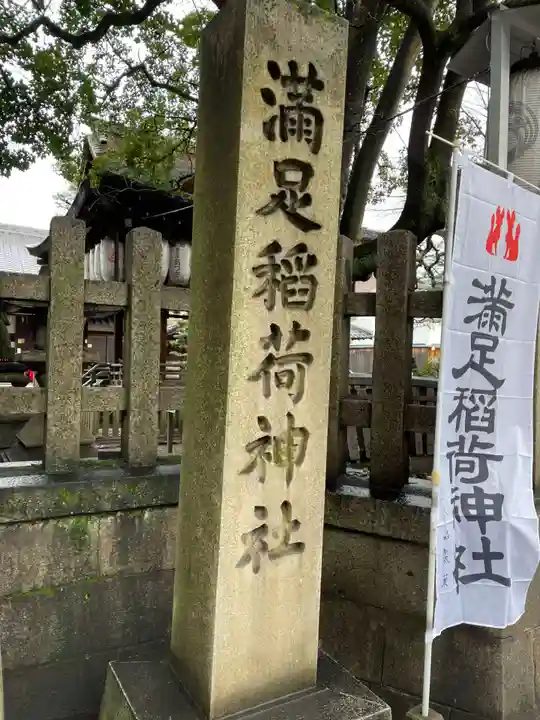 滿足稲荷神社
滿足稲荷神社